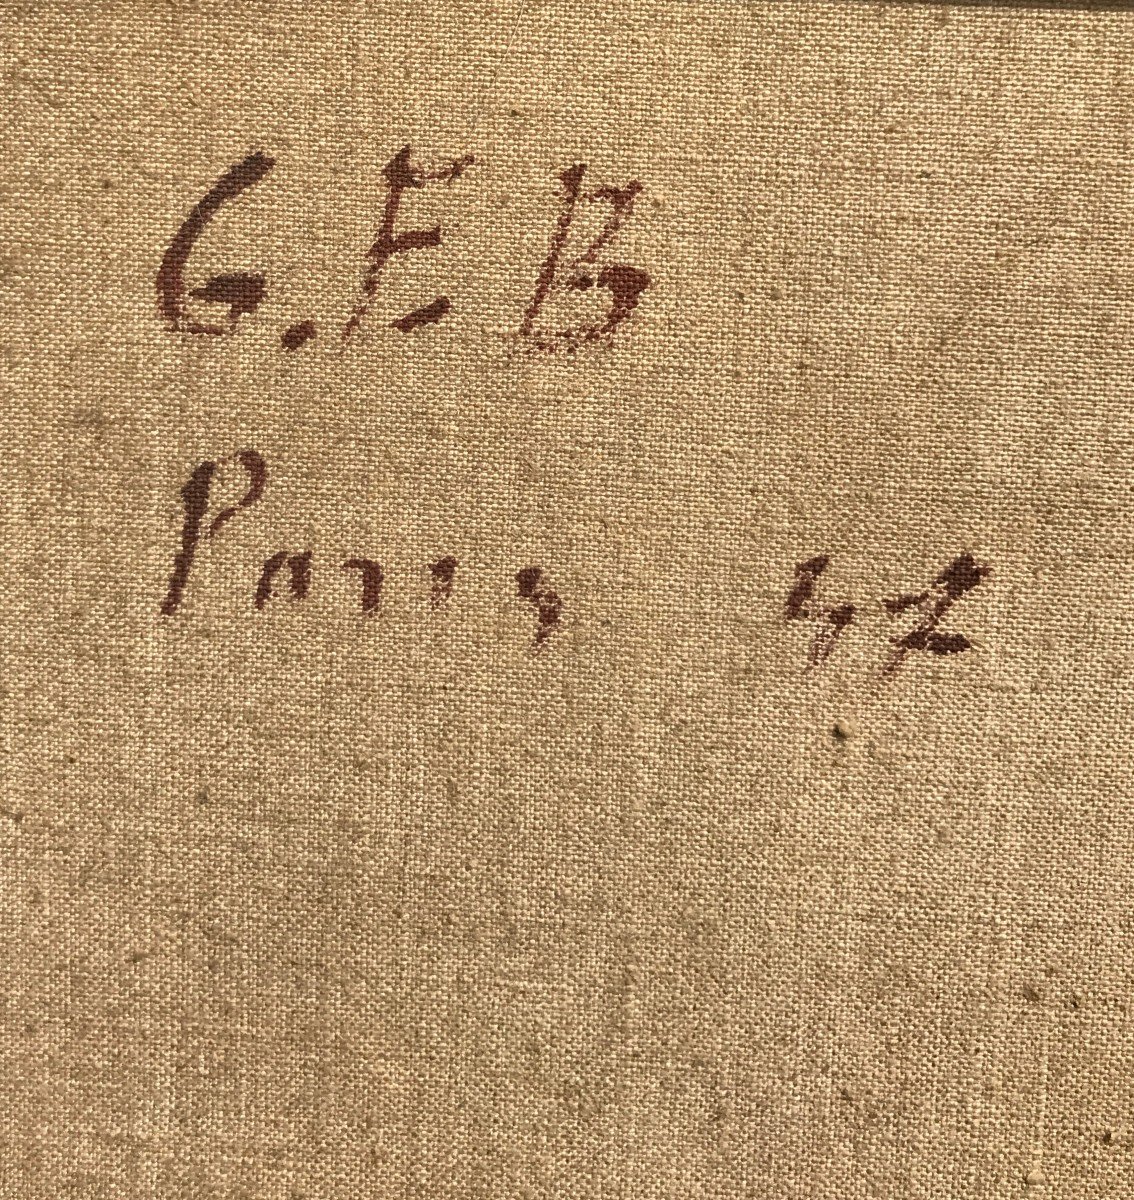 G.E B
Paris 47